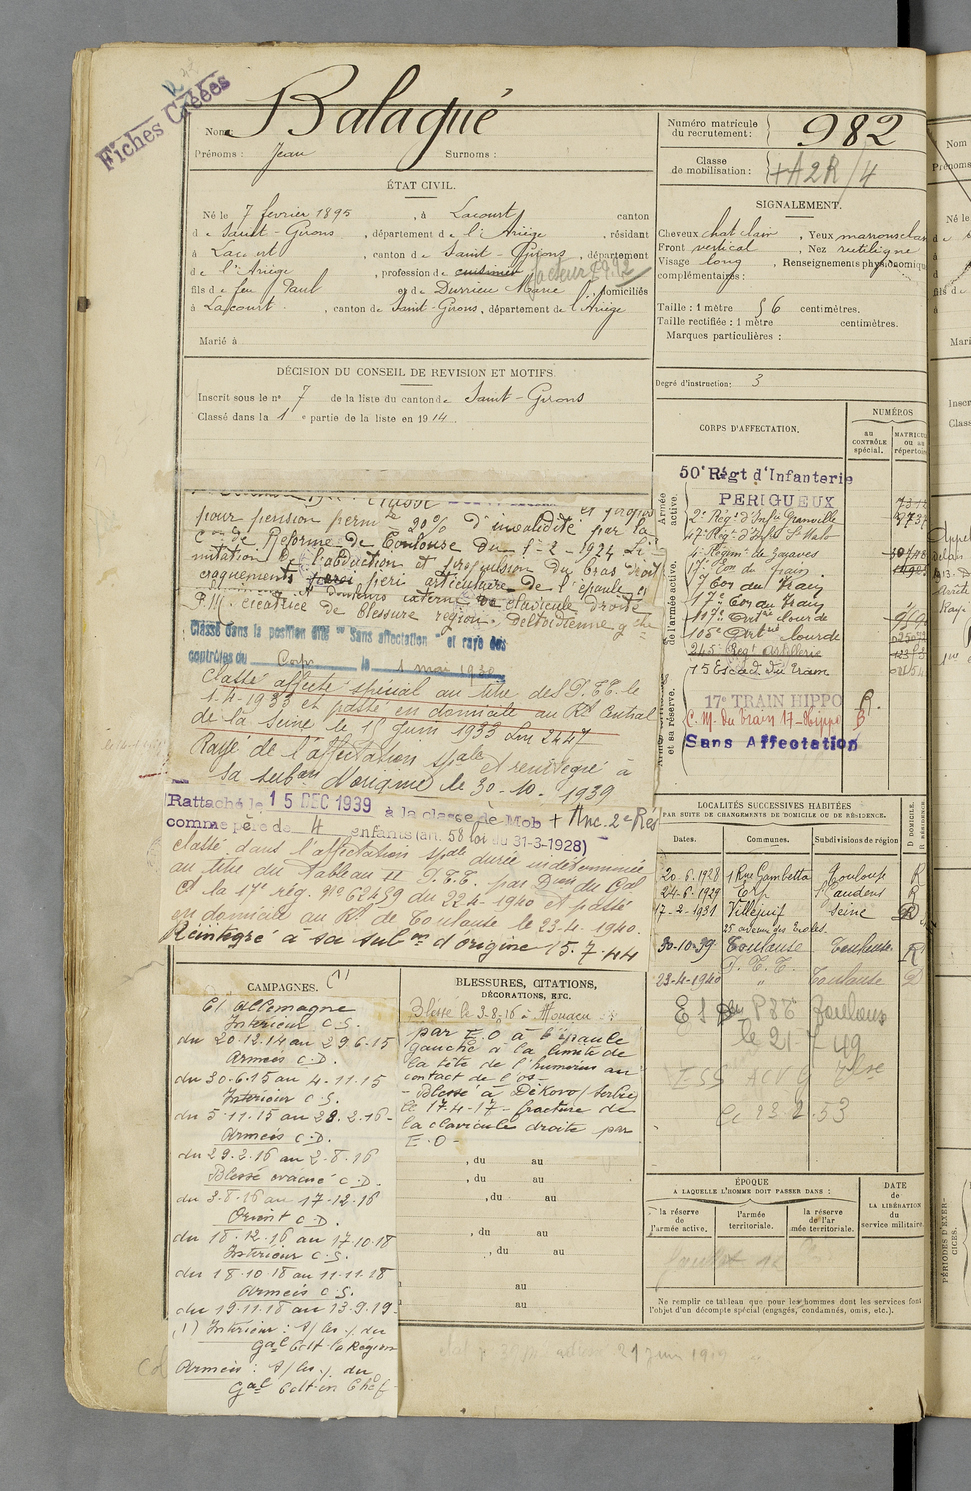 Fiches Créées
Nom Balagué
Prénoms : Jean Surnoms :
Numéro matricule du recrutement : 982
Classe de mobilisation : +A2R/4
ÉTAT CIVIL.
Né le 7 février 1895, à Lacourt, canton
de Saint-Girons, département de l'Ariège, résidant
à Lacourt, canton de Saint-Girons, département
de l'Ariège, profession de cuisinier facteur
fils de feu Paul et de Durrieu Marie domiciliés
à Lacourt, canton de Saint-Girons, département de l'Ariège
Marié à
SIGNALEMENT.
Cheveux chat clair, Yeux marrons clair
Front vertical, Nez rectiligne
Visage long, Renseignements physionomiques
complémentaires :
Taille : 1 mètre 56 centimètres.
Taille rectifiée : 1 mètre centimètres.
Marques particulières :
Degré d'instruction : 3
DÉCISION DU CONSEIL DE REVISION ET MOTIFS.
Inscrit sous le n° 7 de la liste du canton de Saint-Girons
Classé dans la 1e partie de la liste en 1914.
pour pension permte 20% d'invalidité par la
Con de Réforme de Toulouse du 1-2-1924 Li-
mitation de l'abduction et propulsion du bras droit
craquements péri articulaire de l'épaule et
douleurs externe de clavicule droite
P.M. cicatrice de blessure région Deltoïdienne gche
Classé dans la position dite "Sans affectation" et rayé des
contrôles du Corps le 1 mai 1930
Classé affecté spécial au titre des P.T.T. le
1-4-1933 et passé en domicile au Rt Central
de la Seine le 15 juin 1933 2447
Rayé de l'affectation spale et réintégré à
sa subon d'origine le 30-10-1939
Rattaché le 15 DEC 1939 à la classe de Mob + Anc. 2e Rés
comme père de 4 enfants (art. 58 loi du 31-3-1928)
Classé dans l'affectation spale durée indéterminée
au titre du Tableau II P.T.T. par Don du Gal
Ct la 17e rég. N° 62459 du 22-4-1940 et passé
en domicile au Rt de Toulouse le 23-4-1940.
Réintégré à sa subon d'origine 15-7-44
CORPS D'AFFECTATION.
NUMÉROS
au CONTRÔLE spécial.
MATRICULE ou au répertoire
Armée active.
de l'armée active.
et sa réserve.
50e Régt d'Infanterie
PERIGUEUX
2e Régt d'Infie Granville
47e Régt d'Infie St Malo
4e Régim. de Zouaves
17e Eon de train.
7 Eon du Train
17e Eon du Train
117e Artie lourde
105e Artie lourde
245e Régt artillerie
15 Escad. du Train
17e TRAIN HIPPO R.
C. M. du train 17 Hippo R
Sans Affectation
LOCALITÉS SUCCESSIVES HABITÉES
PAR SUITE DE CHANGEMENTS DE DOMICILE OU DE RÉSIDENCE.
Dates. Communes. Subdivisions de région D. DOMICILE. R. RÉSIDENCE.
20-6-1928 1 Rue Gambetta Toulouse R
24-6-1929 Esp St Gaudens R
17-2-1931 Villejuif Seine R
25 avenue des Ecoles.
30-10-39 Toulouse Toulouse R
P.T.T.
23-4-1940 " Toulouse D
Toulouse
le 21-7-49
CAMPAGNES. (1)
Ct Allemagne
Intérieur C.S.
du 20.12.14 au 29.6.15
Armées C.D.
du 30.6.15 au 4.11.15
Intérieur C.S.
du 5.11.15 au 28.2.16
Armées C.D.
du 29.2.16 au 2.8.16
Blessé évacué C.D.
du 3.8.16 au 17.12.16
Orient C.D.
du 18.12.16 au 17.10.18
Intérieur C.S.
du 18.10.18 au 11.11.18
Armées C.S.
du 19.11.18 au 13.9.19
(1) Intérieur : S/les/. du
Gal Cdt la Région
Armées : S/les/. du
Gal Cdt en Chef
BLESSURES, CITATIONS,
DÉCORATIONS, ETC.
Blessé le 3-8-16 à
par E.O à l'épaule
gauche à la limite de
la tête de l'humérus au
contact de l'os
- Blessé à Dékovo/Serbie
le 17-4-17 - fracture de
la clavicule droite par
E.O -
, du au
, du au
, du au
, du au
, du au
au
au
ÉPOQUE
A LAQUELLE L'HOMME DOIT PASSER DANS :
la réserve de l'armée active.
l'armée territoriale.
la réserve de l'armée territoriale.
DATE de LA LIBÉRATION du service militaire.
Ne remplir ce tableau que pour les hommes dont les services font
l'objet d'un décompte spécial (engagés, condamnés, omis, etc.).
Nom
Prénoms
Né le
fils de
à
Mari
Inscr
Class
PÉRIODES D'EXER-
CICES.